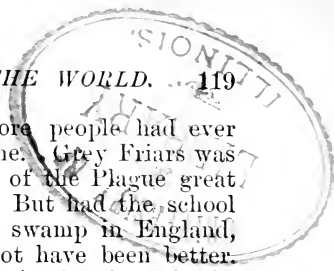 THE WORLD. 119
ore people had ever
ne. Grey Friars was
of the Plague great
But had the school
swamp in England,
ot have been better.
SIONI
ILLINOIS